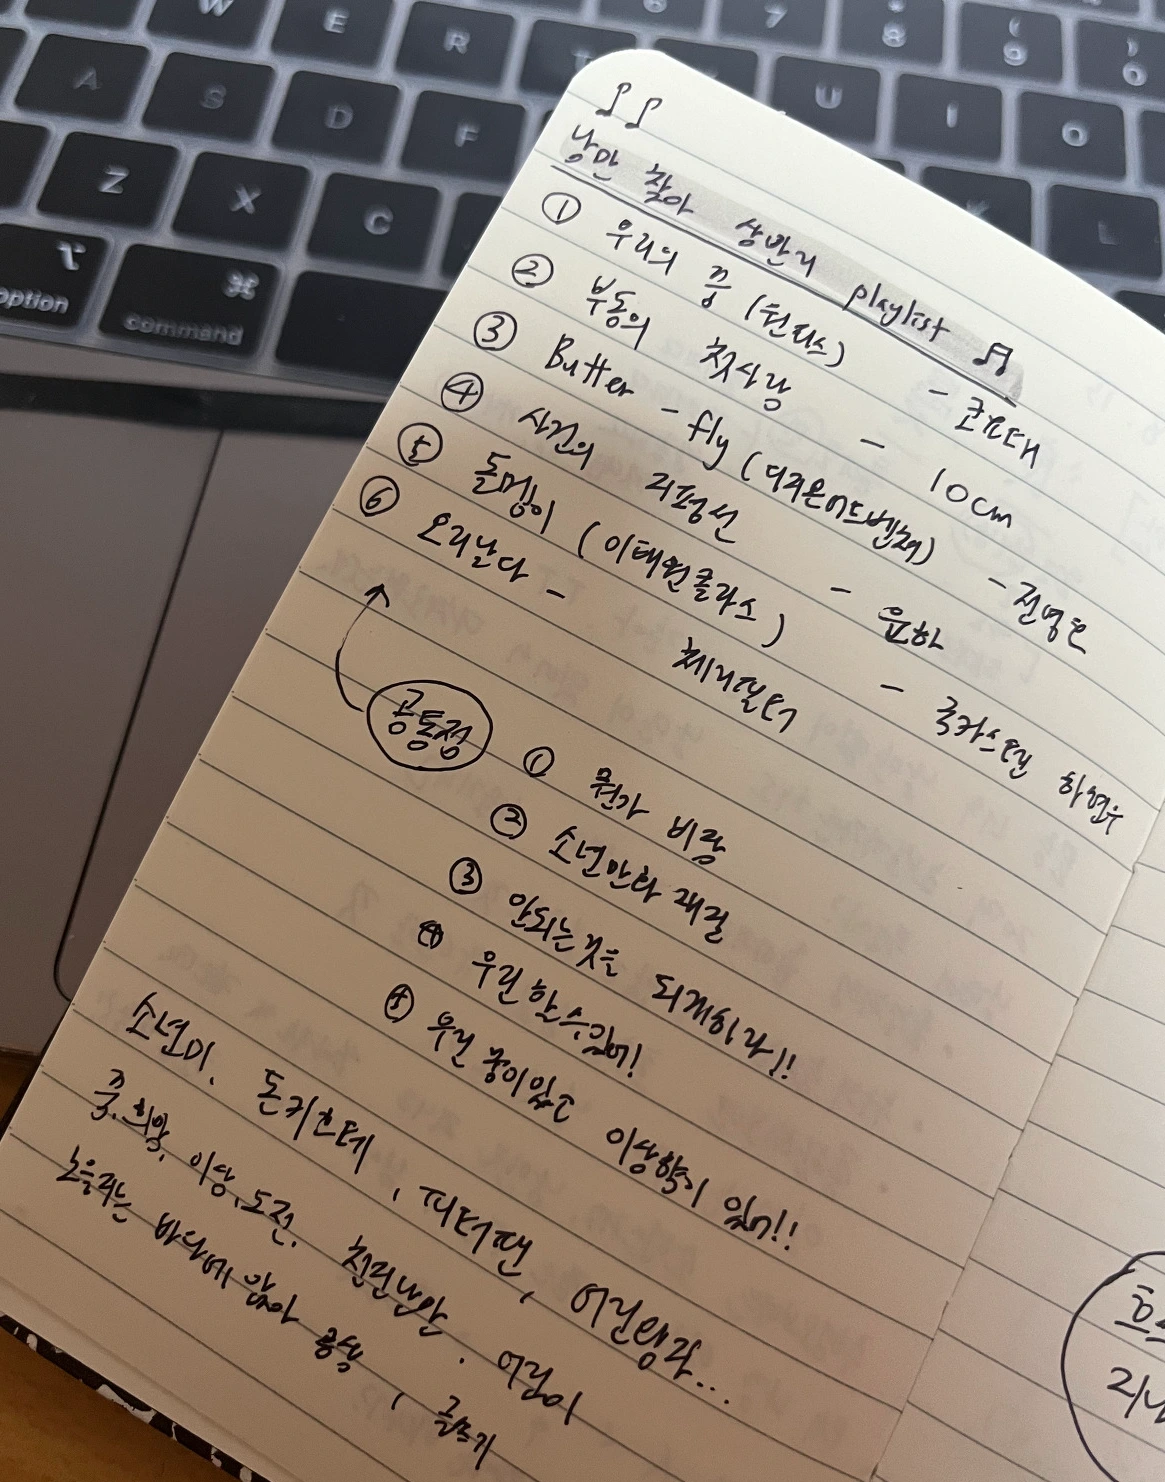 W E R 6 7 8 9 ) 0
A S D F U I O
Z X C K L
option command ⌘
낭만 찾아 상반기 playlist
① 우리의 꿈 (원피스) - 코요태
② 부동의 첫사랑 - 10cm
③ Butter-fly (디지몬어드벤쳐) - 전영호
④ 사건의 지평선 - 윤하
⑤ 돌멩이 (이태원클라쓰) - 국카스텐 하현우
⑥ 오리날다 - 체리필터
공통점 ① 뭔가 비랑
② 소년만화 재질
③ 안되는것을 되게하라!!
④ 우린 할 수 있어!
⑤ 우린 꿈이있고 이상향이 있어!!
소년미, 돈키호테, 피터팬, 어린왕자...
꿈, 희망, 이상, 도전, 천진난만. 어린이
노을지는 바다에 앉아 공상, 글쓰기